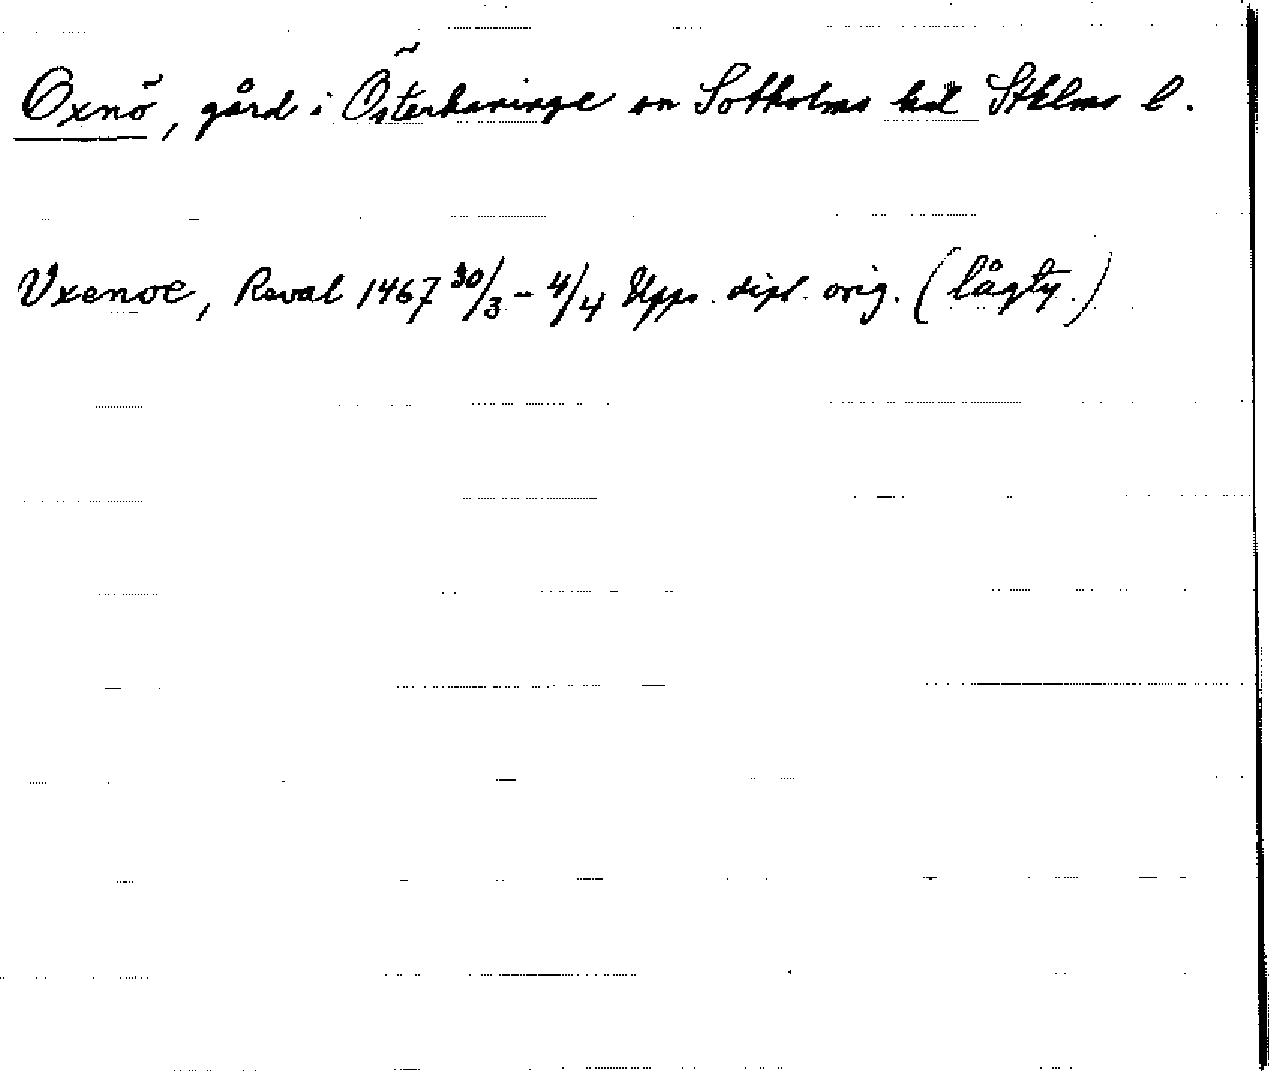 Oxnö, gård i Österhaninge sn Sotholms hd Sthlms l.
Vxenoe, Reval 1467 30/3 - 4/4 Upps. dipl. orig. (lågty.)